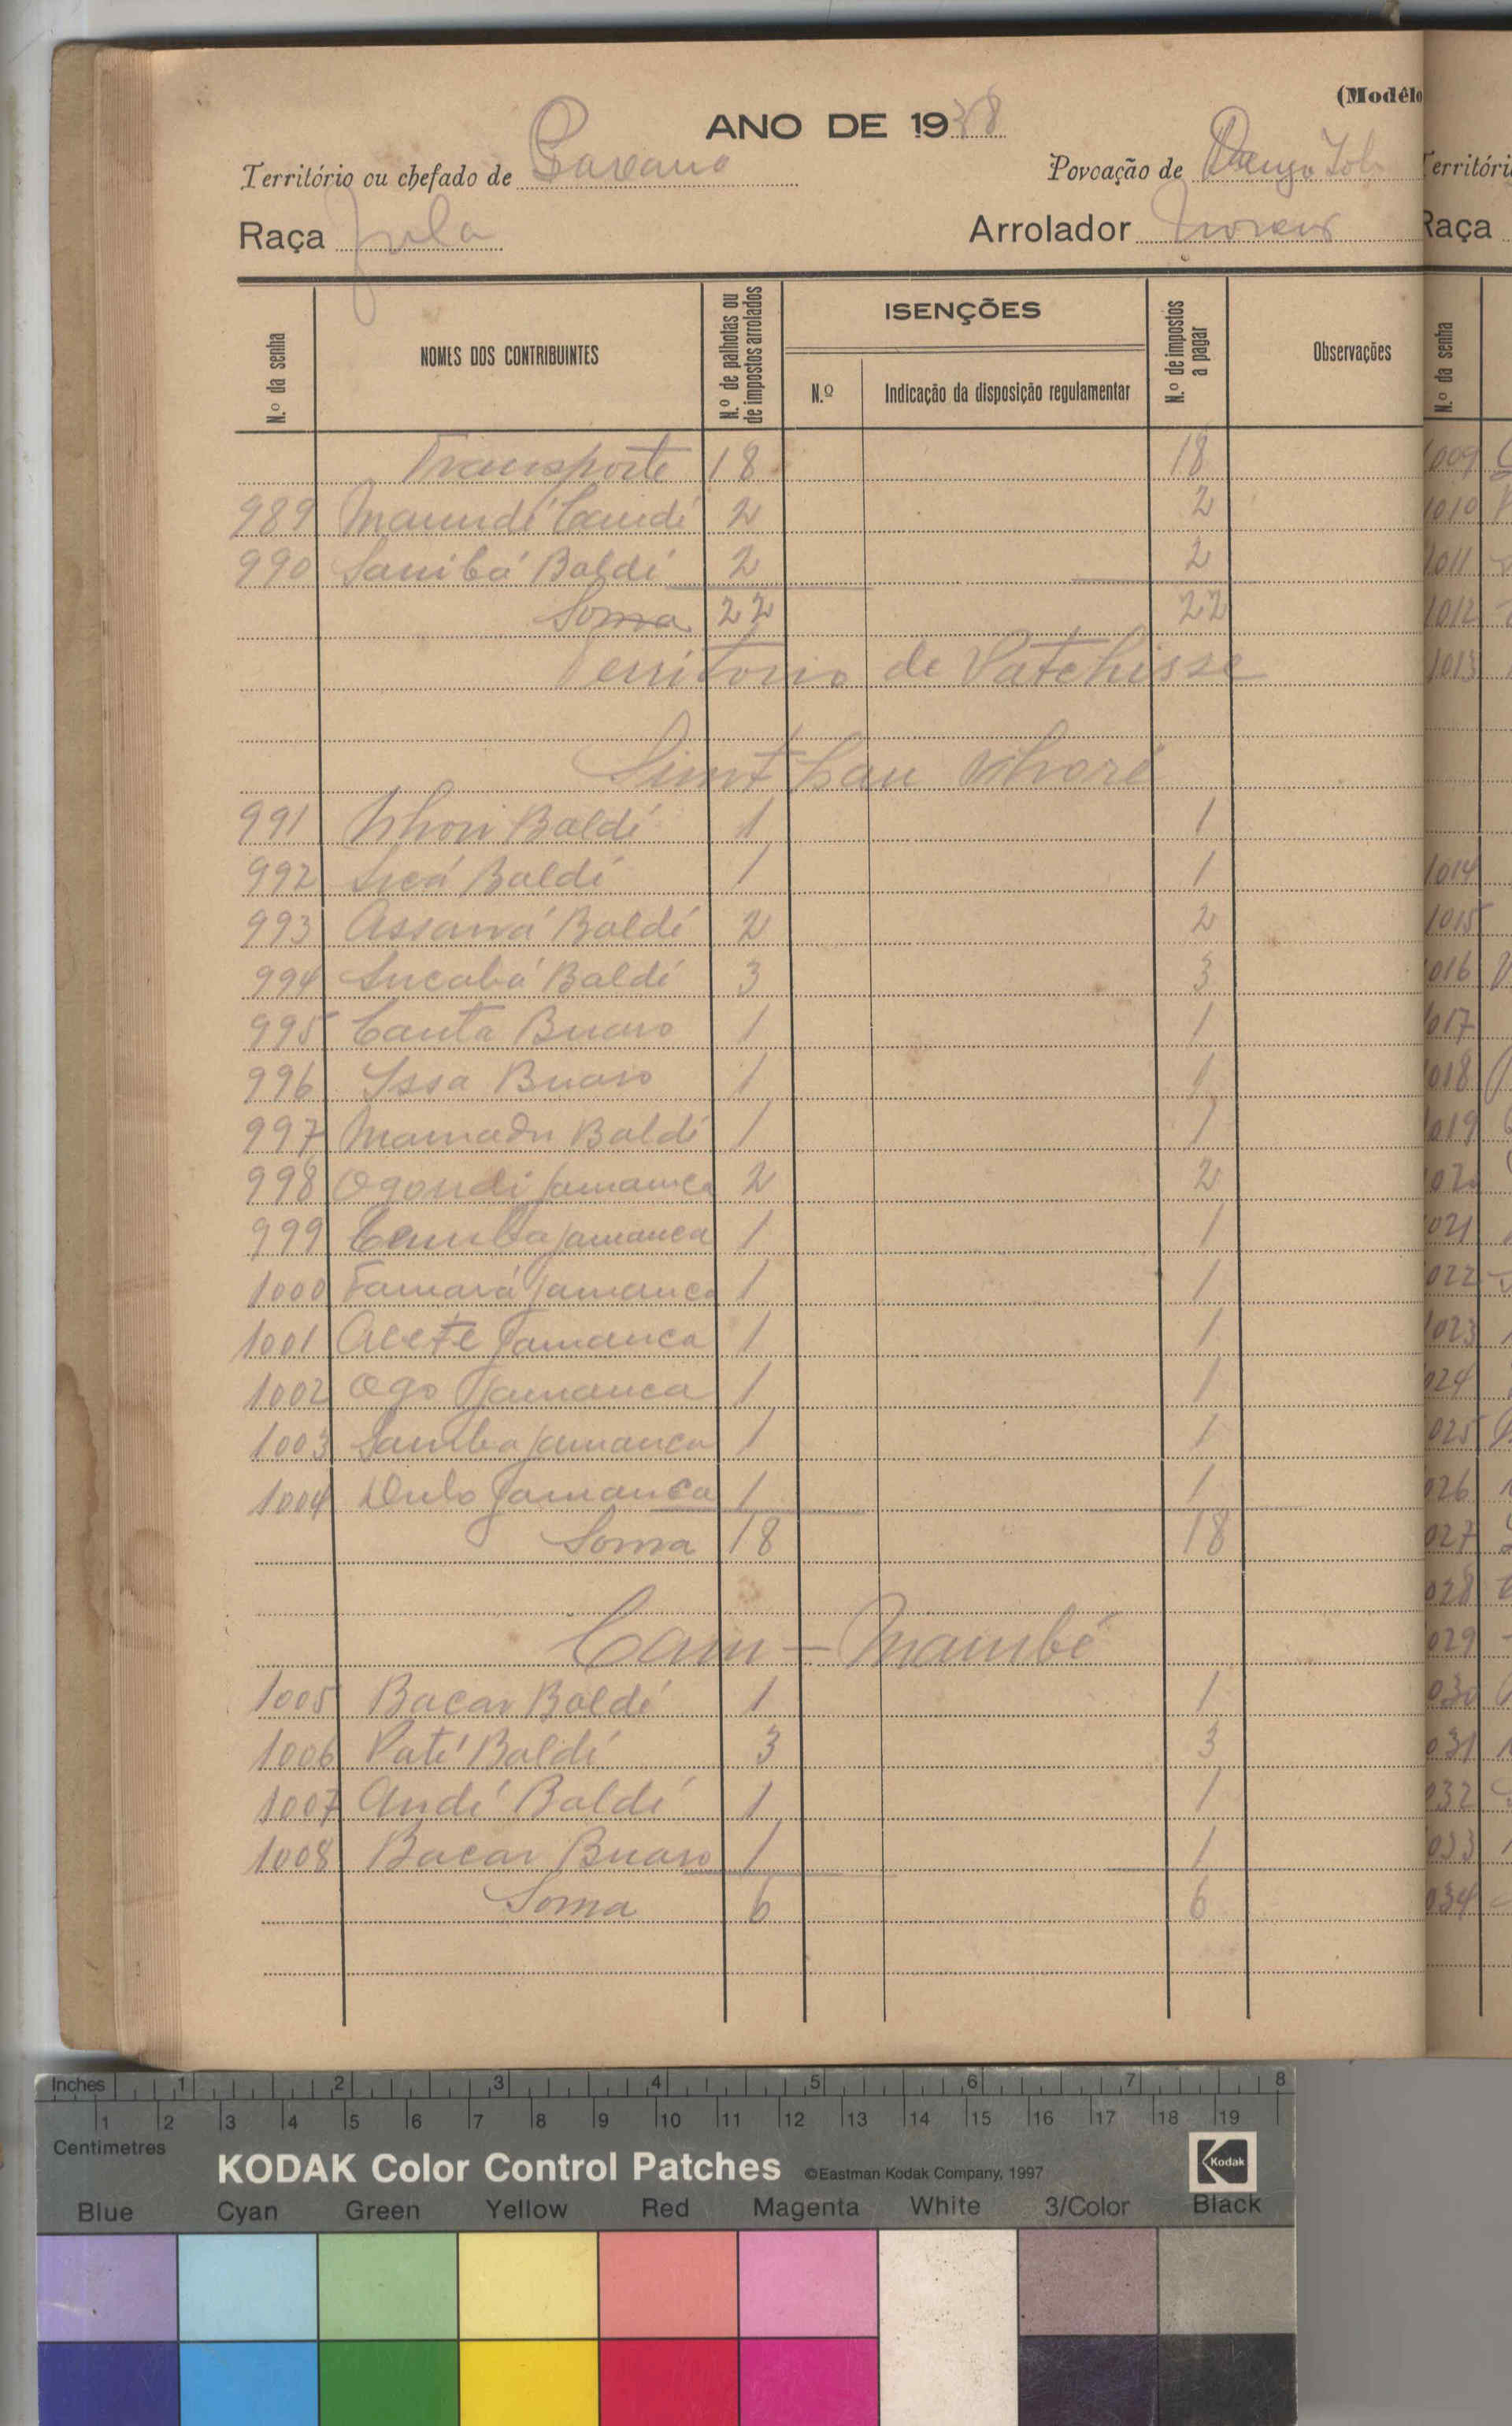 (Modêlo
ANO DE 1938
Território ou chefado de
Povoação de
Raça Fula
Arrolador
N.º da senha
NOMES DOS CONTRIBUINTES
N.º de palhotas ou de impostos arrolados
ISENÇÕES
N.º
Indicação da disposição regulamentar
N.º de impostos a pagar
Observações
Transporte 18 18
989 2 2
990 Sanibá Baldé 2 2
Soma 22 22
Territorio de Patchisse
991 Baldé 1 1
992 Baldé 1 1
993 Baldé 2 2
994 Baldé 3 3
995 Canta Buaro 1 1
996 Issa Buaro 1 1
997 Mamadu Baldé 1 1
998 Jamanca 2 2
999 Jamanca 1 1
1000 Jamanca 1 1
1001 Jamanca 1 1
1002 Ogo Jamanca 1 1
1003 Samba Jamanca 1 1
1004 Jamanca 1 1
Soma 18 18
Cam - Mambé
1005 Bacar Baldé 1 1
1006 Paté Baldé 3 3
1007 Andé Baldé 1 1
1008 Bacar Buaro 1 1
Soma 6 6
Território
Raça
N.º da senha
1009
1010
1011
1012
1013
1014
1015
1016
1017
1018
1019
1021
1022
1023
024
025
026
027
028
029
030
031
032
033
034
Inches 1 2 3 4 5 6 7 8
1 2 3 4 5 6 7 8 9 10 11 12 13 14 15 16 17 18 19
Centimetres
KODAK Color Control Patches ©Eastman Kodak Company, 1997 Kodak
Blue Cyan Green Yellow Red Magenta White 3/Color Black